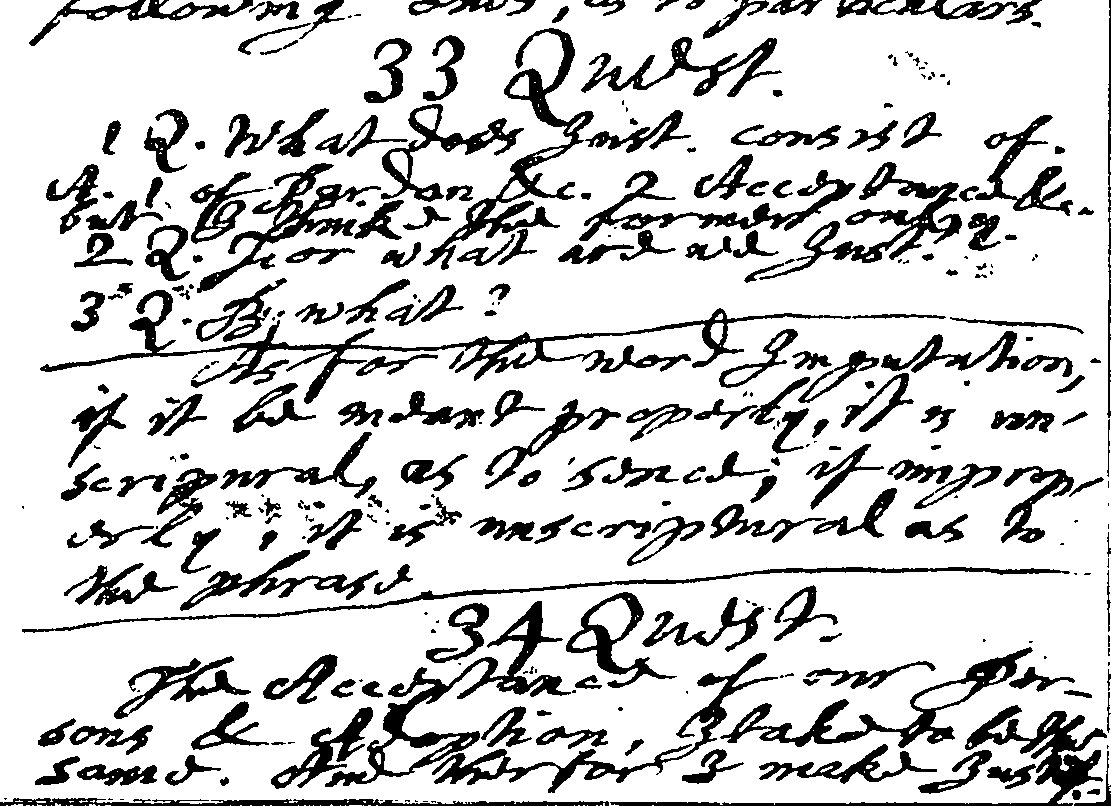 following ones, as to particulars.
33 Quest.
1 Q. What does Just. consist of.
A. 1 of Pardon &c. 2 Acceptance &c.
but I think the former only.
2 Q. For what are we Just.
3 Q. By what?
As for the word Imputation,
if it be meant properly, it is un-
scriptural, as to sence; if improp-
erly, it is unscriptural as to
the phrase.
34 Quest.
The Acceptance of our Per-
sons & Adoption, I take to be the
same. And therfor I make Just.